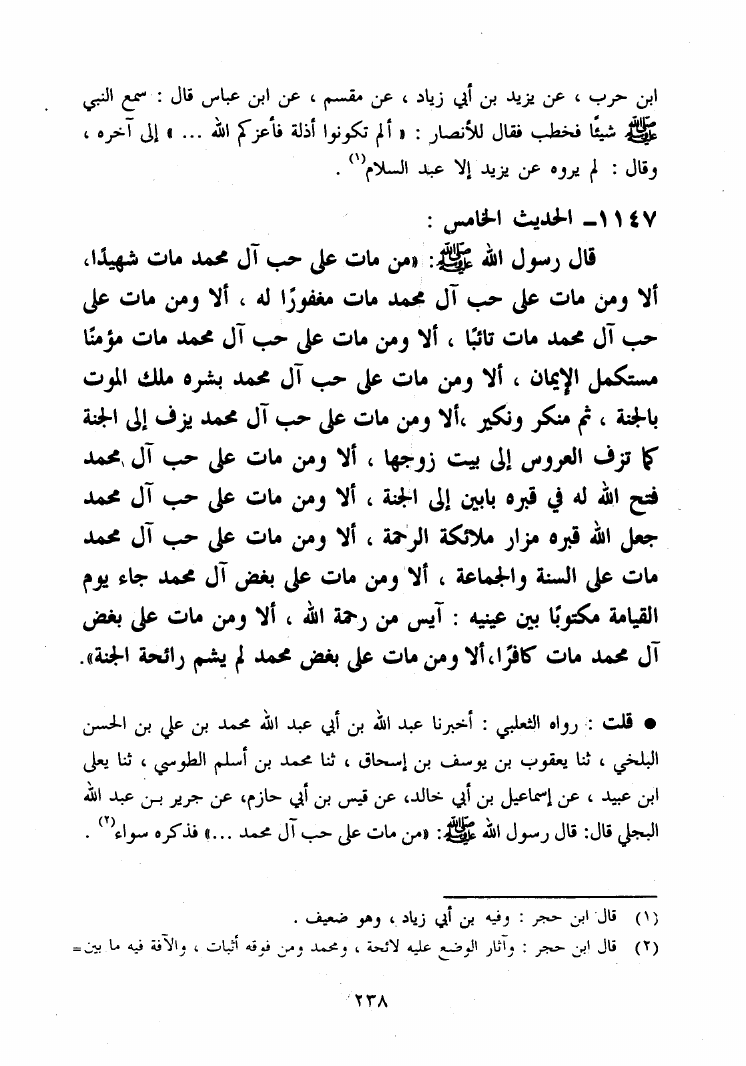 ابن حرب ، عن يزيد بن أبي زياد ، عن مقسم ، عن ابن عباس قال : سمع النبي
ﷺ شيئًا فخطب فقال للأنصار : « ألم تكونوا أذلة فأعزكم الله ... » إلى آخره ،
وقال : لم يروه عن يزيد إلا عبد السلام(١) .
١١٤٧ـ الحديث الخامس :
قال رسول الله ﷺ: «من مات على حب آل محمد مات شهيدًا،
ألا ومن مات على حب آل محمد مات مغفورًا له ، ألا ومن مات على
حب آل محمد مات تائبًا ، ألا ومن مات على حب آل محمد مات مؤمنًا
مستكمل الإيمان ، ألا ومن مات على حب آل محمد بشره ملك الموت
بالجنة ، ثم منكر ونكير ،ألا ومن مات على حب آل محمد يزف إلى الجنة
كما تزف العروس إلى بيت زوجها ، ألا ومن مات على حب آل محمد
فتح الله له في قبره بابين إلى الجنة ، ألا ومن مات على حب آل محمد
جعل الله قبره مزار ملائكة الرحمة ، ألا ومن مات على حب آل محمد
مات على السنة والجماعة ، ألا ومن مات على بغض آل محمد جاء يوم
القيامة مكتوبًا بين عينيه : آيس من رحمة الله ، ألا ومن مات على بغض
آل محمد مات كافرًا،ألا ومن مات على بغض محمد لم يشم رائحة الجنة».
● قلت : رواه الثعلبي : أخبرنا عبد الله بن أبي عبد الله محمد بن علي بن الحسن
البلخي ، ثنا يعقوب بن يوسف بن إسحاق ، ثنا محمد بن أسلم الطوسي ، ثنا يعلى
ابن عبيد ، عن إسماعيل بن أبي خالد، عن قيس بن أبي حازم، عن جرير بن عبد الله
البجلي قال: قال رسول الله ﷺ: «من مات على حب آل محمد ...» فذكره سواء(٢) .
(١) قال ابن حجر : وفيه بن أبي زياد ، وهو ضعيف .
(٢) قال ابن حجر : وآثار الوضع عليه لائحة ، ومحمد ومن فوقه أثبات ، والآفة فيه ما بين=
٢٣٨